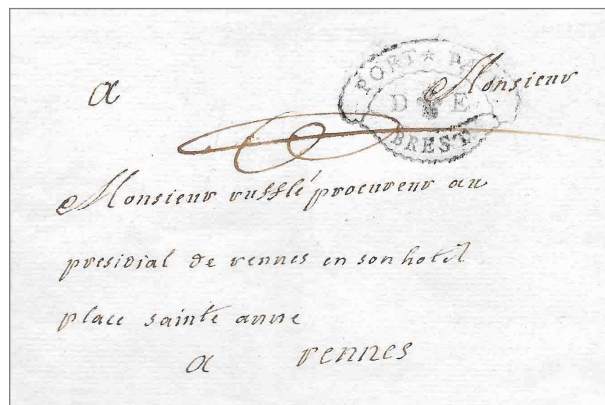 a Monsieur
PORT ★ PAYÉ
D E
BREST
Monsieur rufflé procureur au
presidial de rennes en son hotel
place sainte anne
a rennes